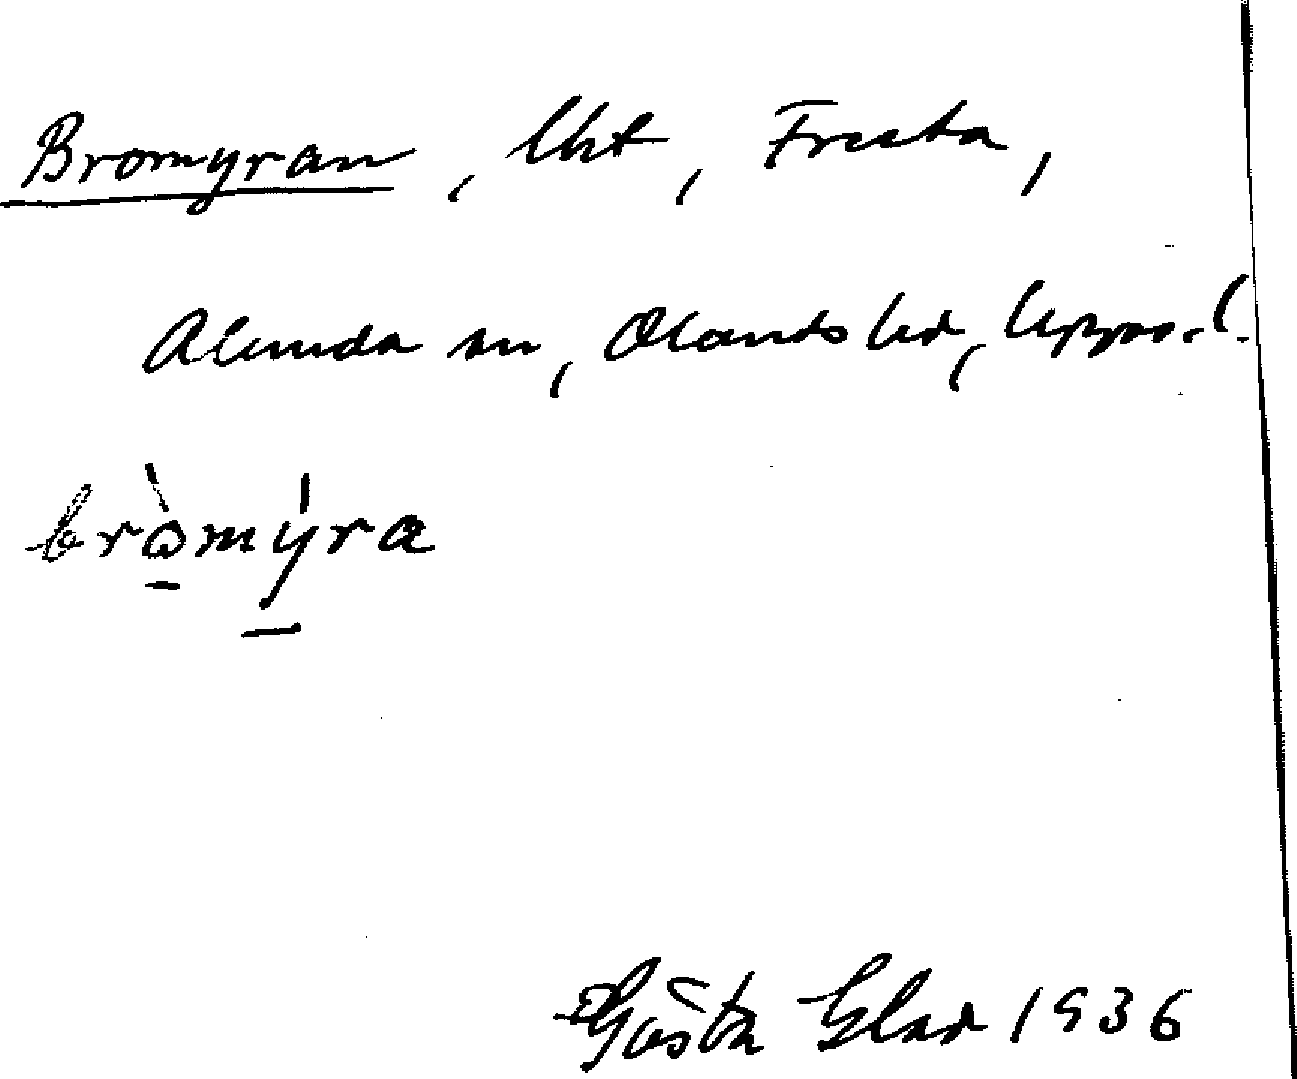 Bromyran, Uht, Fresta,
Alunda sn, Olands hd, Upps. l.
bròmýra
Gösta Glad 1936